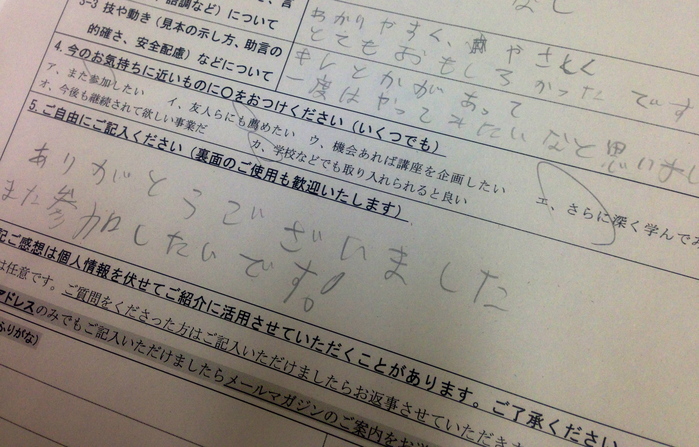 なし
語調など）について
3-3 技や動き（見本の示し方、助言の
的確さ、安全配慮）などについて
わかりやすく、
とてもおもしろかったです
キレとかがあって
一度はやってみたいなと思いまし
4. 今のお気持ちに近いものに○をおつけください（いくつでも）
ア、また参加したい　イ、友人らにも薦めたい　ウ、機会あれば講座を企画したい　エ、さらに深く学んで
オ、今後も継続されて欲しい事業だ　カ、学校などでも取り入れられると良い
5. ご自由にご記入ください（裏面のご使用も歓迎いたします）
ありがとうございました
また参加したいです!
記ご感想は個人情報を伏せてご紹介に活用させていただくことがあります。ご了承ください
は任意です。ご質問をくださった方はご記入いただけましたらお返事させていただきま
アドレスのみでもご記入いただけましたらメールマガジンのご案内をお
ふりがな）